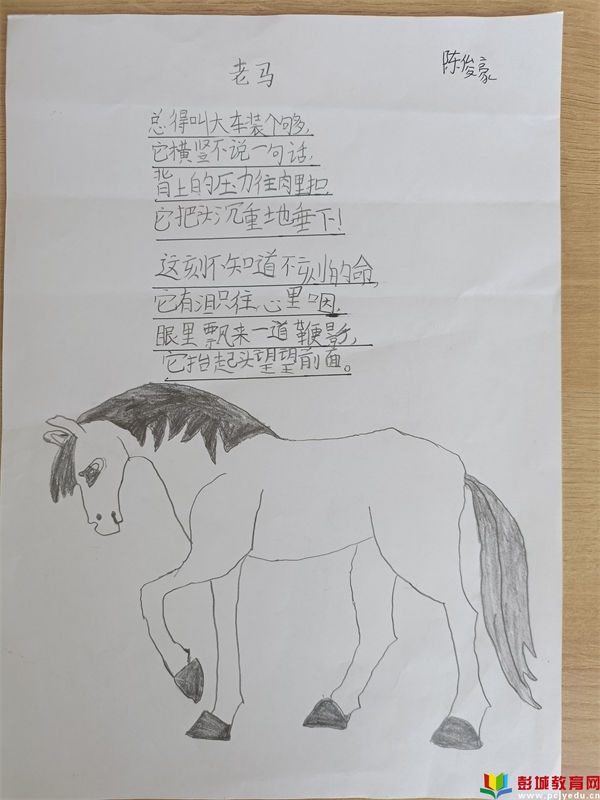 老马
陈俊豪
总得叫大车装个够,
它横竖不说一句话,
背上的压力往肉里扣,
它把头沉重地垂下!
这刻不知道下刻的命,
它有泪只往心里咽,
眼里飘来一道鞭影,
它抬起头望望前面。
彭城教育网
www.pcjyedu.cn